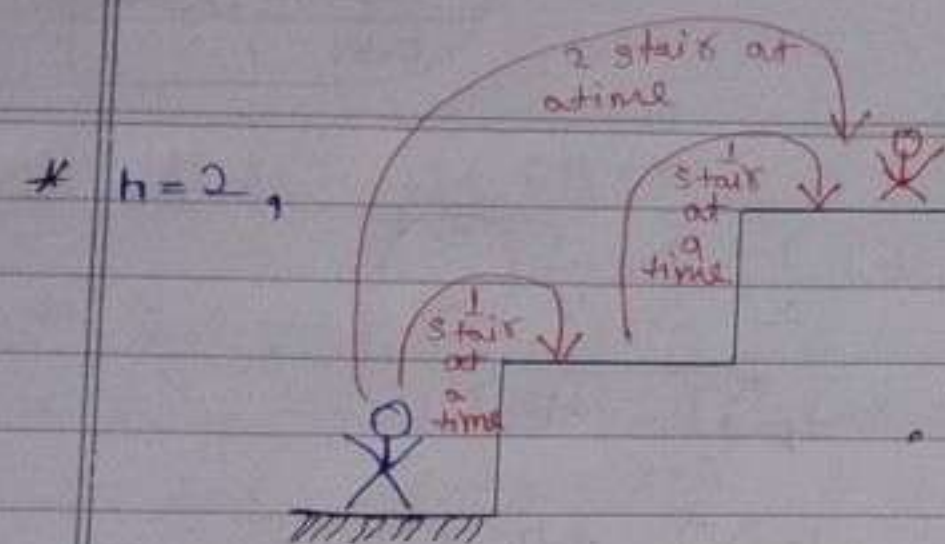 2 stair at
atime
* n = 2,
1
stair
at
a
time
1
stair
at
a
time